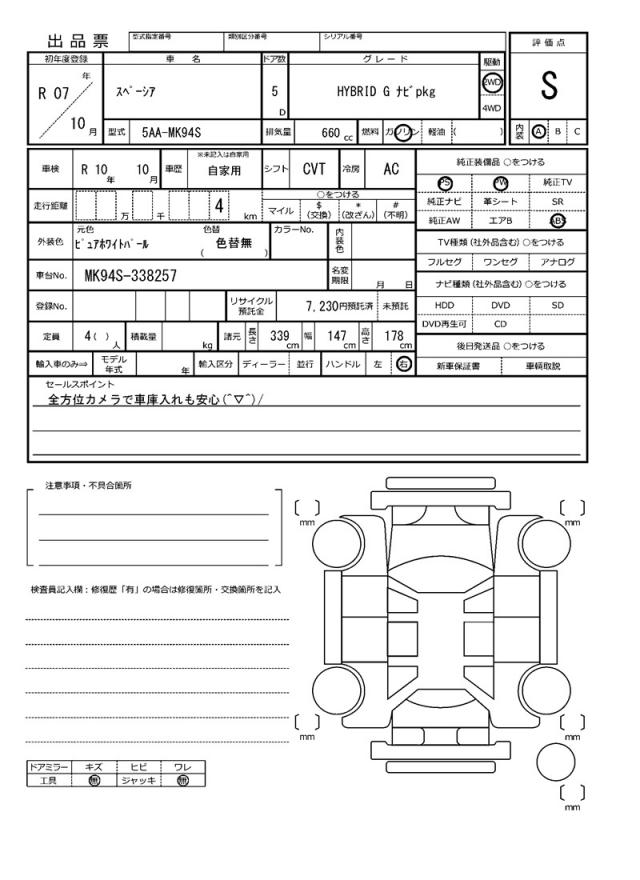 出品票 型式指定番号 類別区分番号 シリアル番号
評価点
S
初年度登録 車名 ドア数 グレード 駆動
R 07 年 スペーシア 5 D HYBRID G ナビpkg 2WD
4WD
10 月 型式 5AA-MK94S 排気量 660 cc 燃料 ガソリン 軽油 ( ) 内装 A B C
車検 R 10 年 10 月 車歴 ※未記入は自家用 自家用 シフト CVT 冷房 AC
純正装備品 ○をつける
PS PW 純正TV
純正ナビ 革シート SR
純正AW エアB ABS
走行距離 万 千 4 km ○をつける
マイル $(交換) *(改ざん) #(不明)
外装色 元色 ピュアホワイトパール 色替 ( 色替無 ) カラーNo. 内装色
TV種類(社外品含む)○をつける
フルセグ ワンセグ アナログ
車台No. MK94S-338257 名変期限 月 日
ナビ種類(社外品含む)○をつける
HDD DVD SD
DVD再生可 CD
登録No. リサイクル預託金 7,230円預託済 未預託
定員 4( )人 積載量 kg 諸元 長さ 339 cm 幅 147 cm 高さ 178 cm
後日発送品 ○をつける
新車保証書 車輌取説
輸入車のみ⇒ モデル年式 年 輸入区分 ディーラー 並行 ハンドル 左 右
セールスポイント
全方位カメラで車庫入れも安心(^▽^)/
注意事項・不具合箇所
検査員記入欄:修復歴「有」の場合は修復箇所・交換箇所を記入
mm
mm
mm
mm
mm
ドアミラー キズ ヒビ ワレ
工具 無 ジャッキ 無